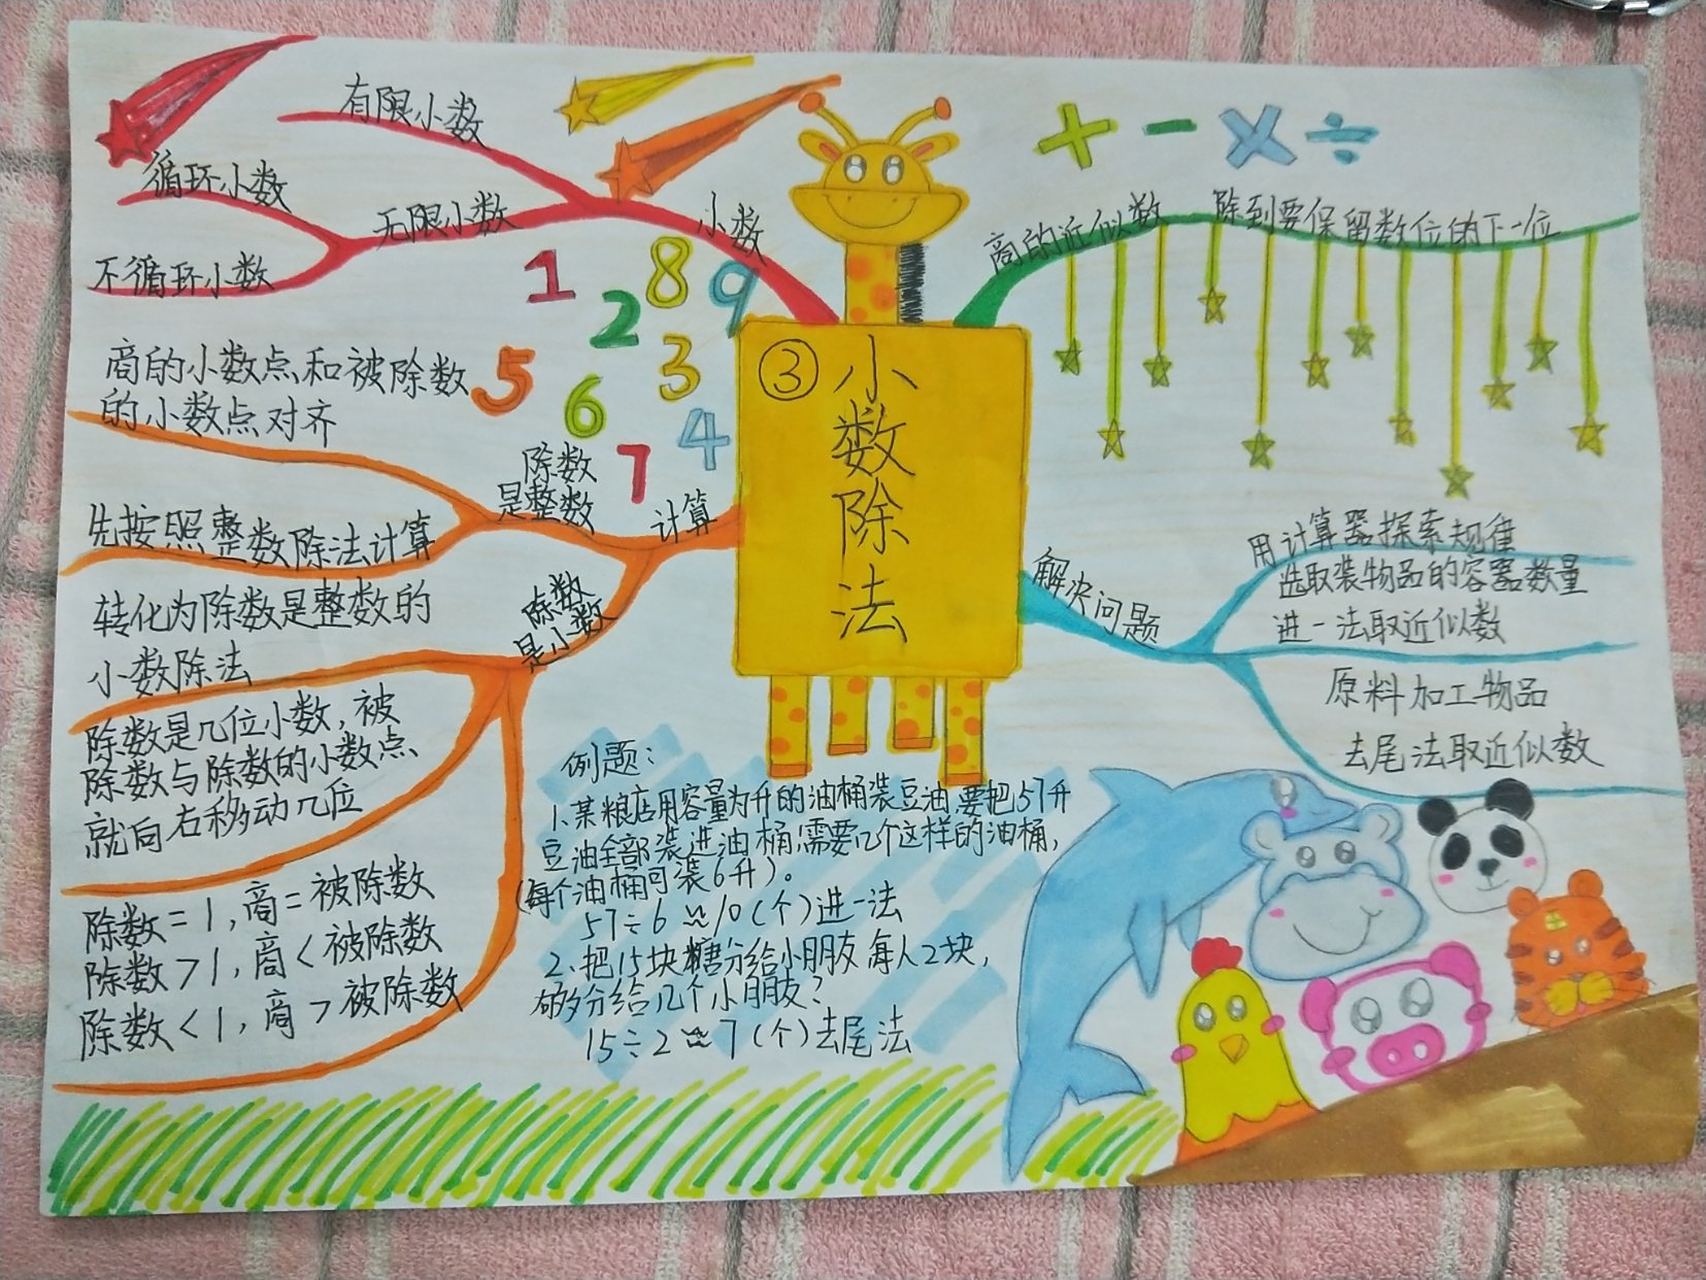 有限小数
循环小数
无限小数
不循环小数
小数
1
8
2
9
5
3
6
4
7
商的小数点和被除数
的小数点对齐
除数
是整数
计算
先按照整数除法计算
除数
是小数
转化为除数是整数的
小数除法
除数是几位小数,被
除数与除数的小数点
就向右移动几位
除数=1,商=被除数
除数>1,商<被除数
除数<1,商>被除数
③小数除法
+ - × ÷
商的近似数
除到要保留数位的下一位
解决问题
用计算器探索规律
选取装物品的容器数量
进一法取近似数
原料加工物品
去尾法取近似数
例题:
1、某粮店用容量为升的油桶装豆油,要把57升
豆油全部装进油桶,需要几个这样的油桶,
(每个油桶可装6升)。
57÷6≈10(个)进一法
2、把15块糖分给小朋友每人2块,
够分给几个小朋友?
15÷2≈7(个)去尾法